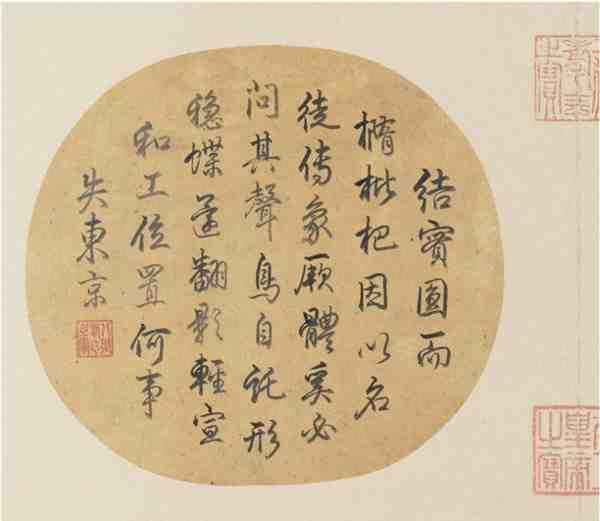 結實圓而
橢枇杷因以名
徒傳象厥體奚必
問其聲鳥自託形
穩蝶還翻影輕宣
和工位置何事
失東京